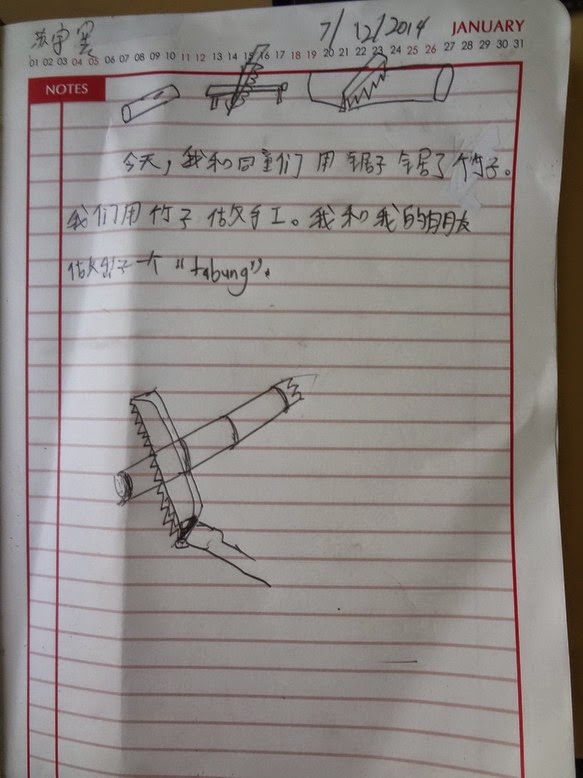 苏宇 7/12/2014 JANUARY
01 02 03 04 05 06 07 08 09 10 11 12 13 14 15 16 17 18 19 20 21 22 23 24 25 26 27 28 29 30 31
NOTES
今天，我和同童们用锯子锯了竹子。
我们用竹子做手工。我和我的朋友
做 一个“tabung”。